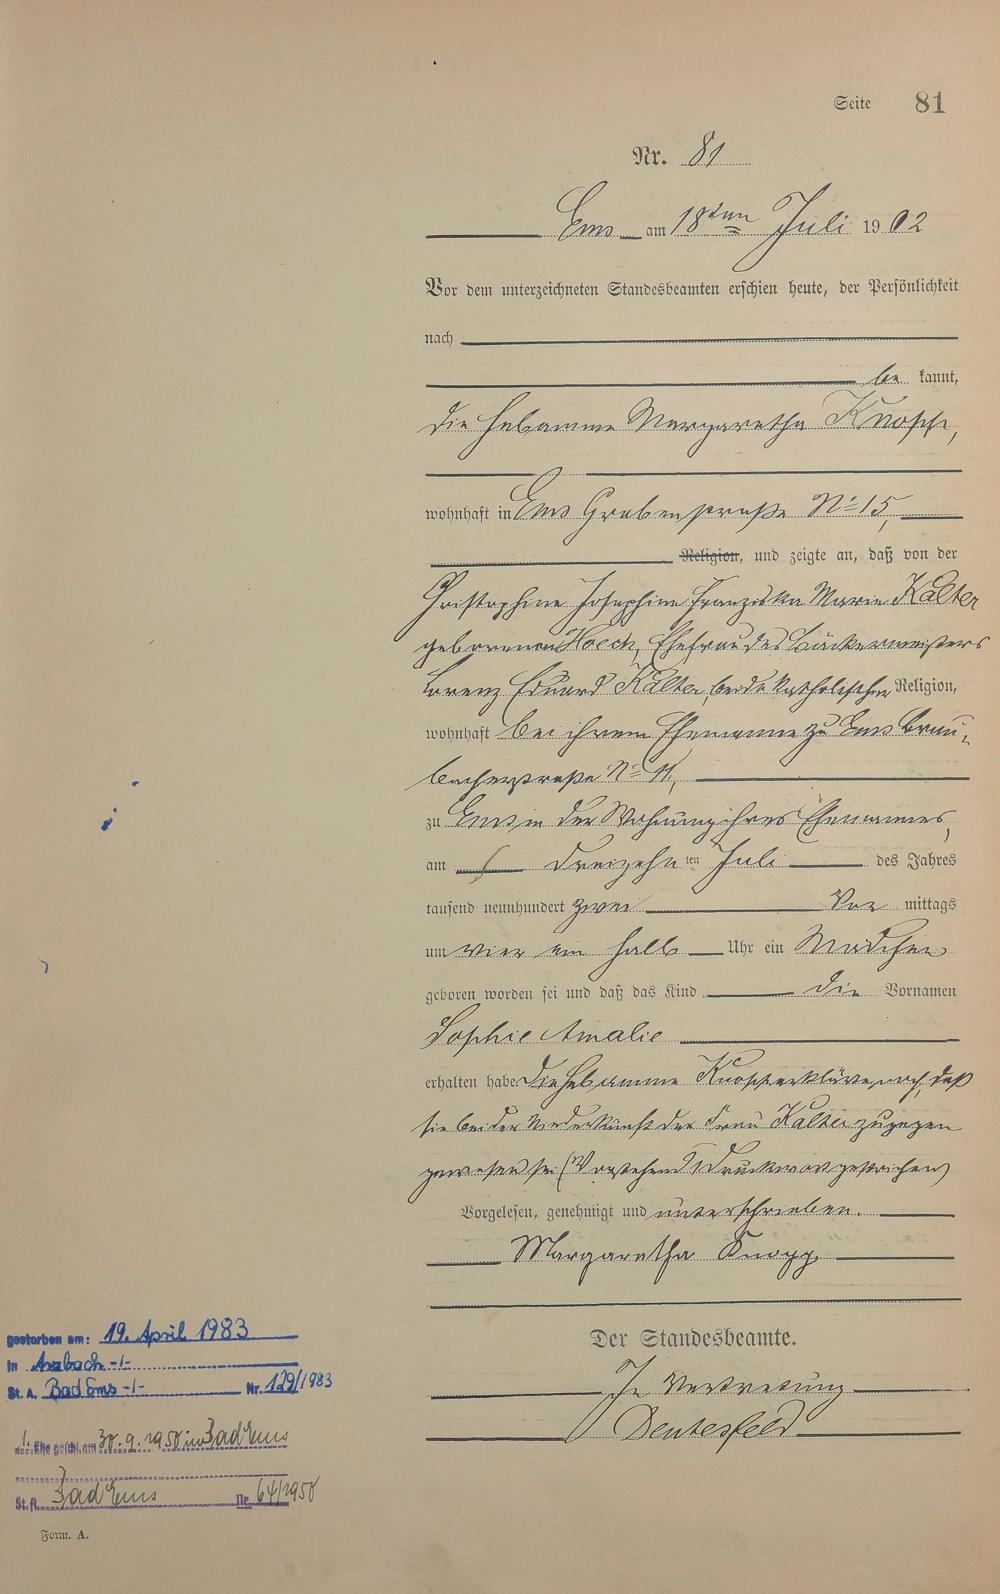 Seite 81
Nr. 81
Ems am 18ten Juli 1902
Vor dem unterzeichneten Standesbeamten erschien heute, der Persönlichkeit
nach
be kannt,
die Hebamme Margaretha Knopp,
wohnhaft in Ems Grabenstraße No 15,
Religion, und zeigte an, daß von der
Christophine Josephine Franziska Marie Kalter
geborenen Hoech, Ehefrau des Bäckermeisters
Lorenz Eduard Kalter, beide katholischer Religion,
wohnhaft bei ihrem Ehemanne zu Ems Brau-
bacherstraße No 11,
zu Ems in der Wohnung ihres Ehemannes,
am dreizehnten Juli des Jahres
tausend neunhundert zwei Vor mittags
um vier ein halb Uhr ein Mädchen
geboren worden sei und daß das Kind die Vornamen
Sophie Amalie
erhalten habe. Die Hebamme Knopp erkläre noch, daß
sie bei der Niederkunft der Frau Kalter zugegen
gewesen sei (Vorstehend 1 Druckwort gestrichen)
Vorgelesen, genehmigt und unterschrieben.
Margaretha Knopp
Der Standesbeamte.
In Vertretung
gestorben am: 19. April 1983
in Arzbach -/-
St. A. Bad Ems -/- Nr. 129/1983
1. Ehe geschl. am 30.9.1950 in Bad Ems
St. A. Bad Ems Nr. 64/1950
Form. A.